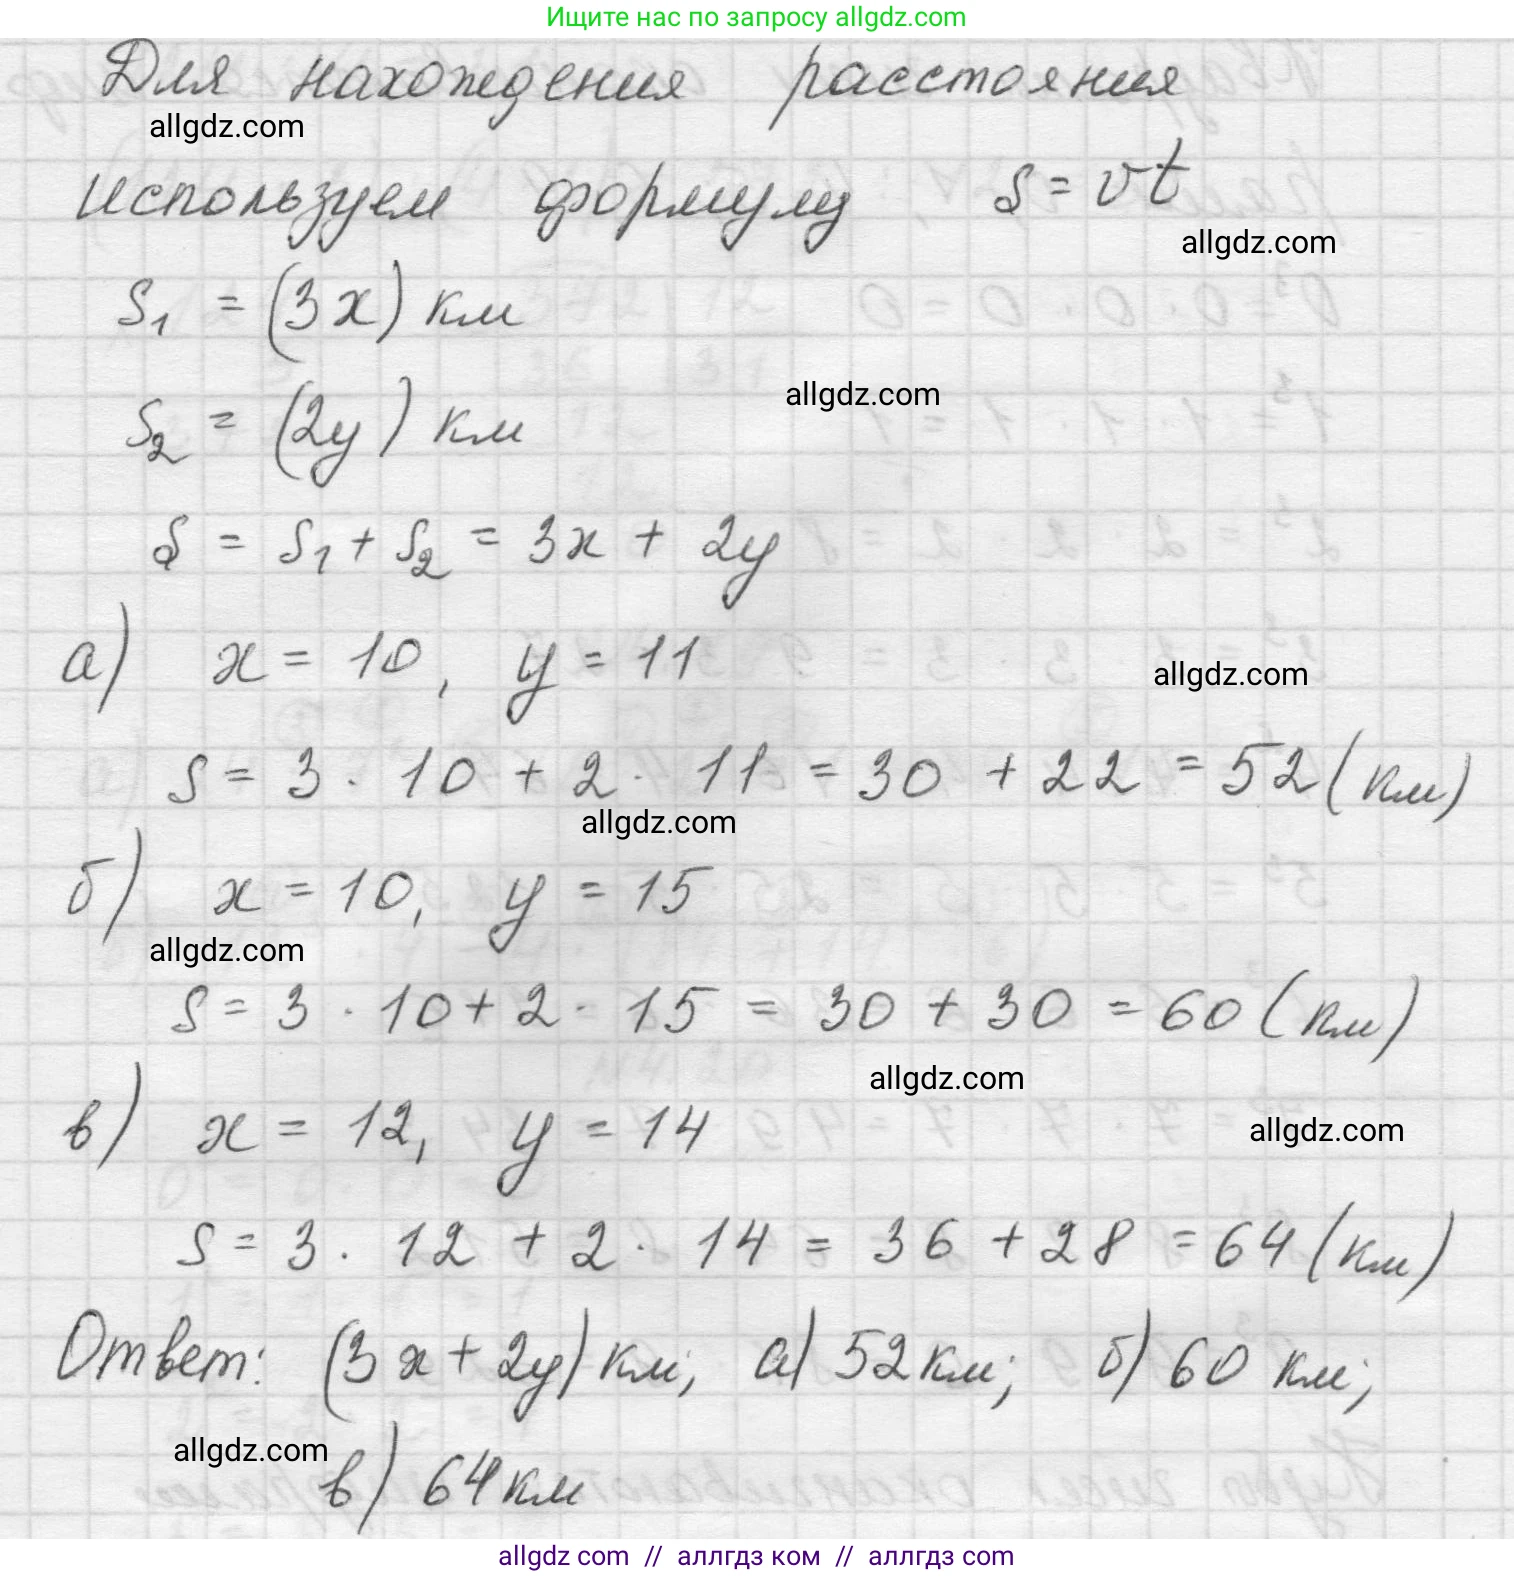 Ищите нас по запросу allgdz.com
Для нахождения расстояния
allgdz.com
используем формулу s = vt
allgdz.com
s₁ = (3x) км
s₂ = (2y) км
allgdz.com
s = s₁ + s₂ = 3x + 2y
а) x = 10, y = 11
allgdz.com
s = 3 · 10 + 2 · 11 = 30 + 22 = 52 (км)
allgdz.com
б) x = 10, y = 15
allgdz.com
s = 3 · 10 + 2 · 15 = 30 + 30 = 60 (км)
allgdz.com
в) x = 12, y = 14
allgdz.com
s = 3 · 12 + 2 · 14 = 36 + 28 = 64 (км)
Ответ: (3x + 2y) км; а) 52 км; б) 60 км;
allgdz.com
в) 64 км
allgdz com // аллгдз ком // аллгдз com